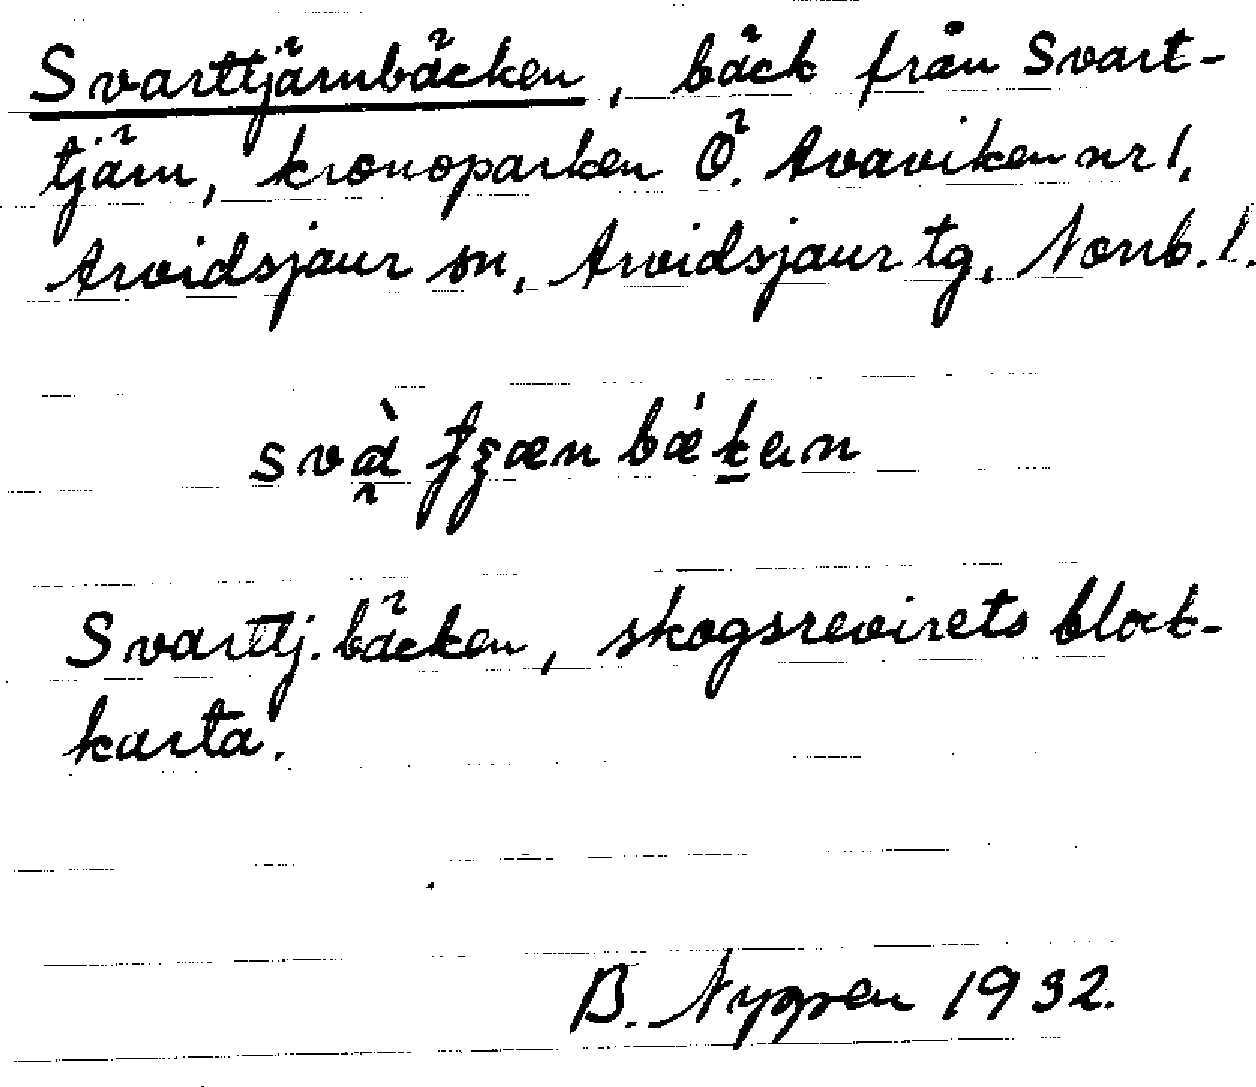 Svarttjärnbäcken, bäck från Svart-
tjärn, kronoparken Ö. Avaviken nr 1,
Arvidsjaur sn, Arvidsjaur tg, Norrb. l.
Svarttj. bäcken, skogsrevirets block-
karta.
B. Nygren 1932.